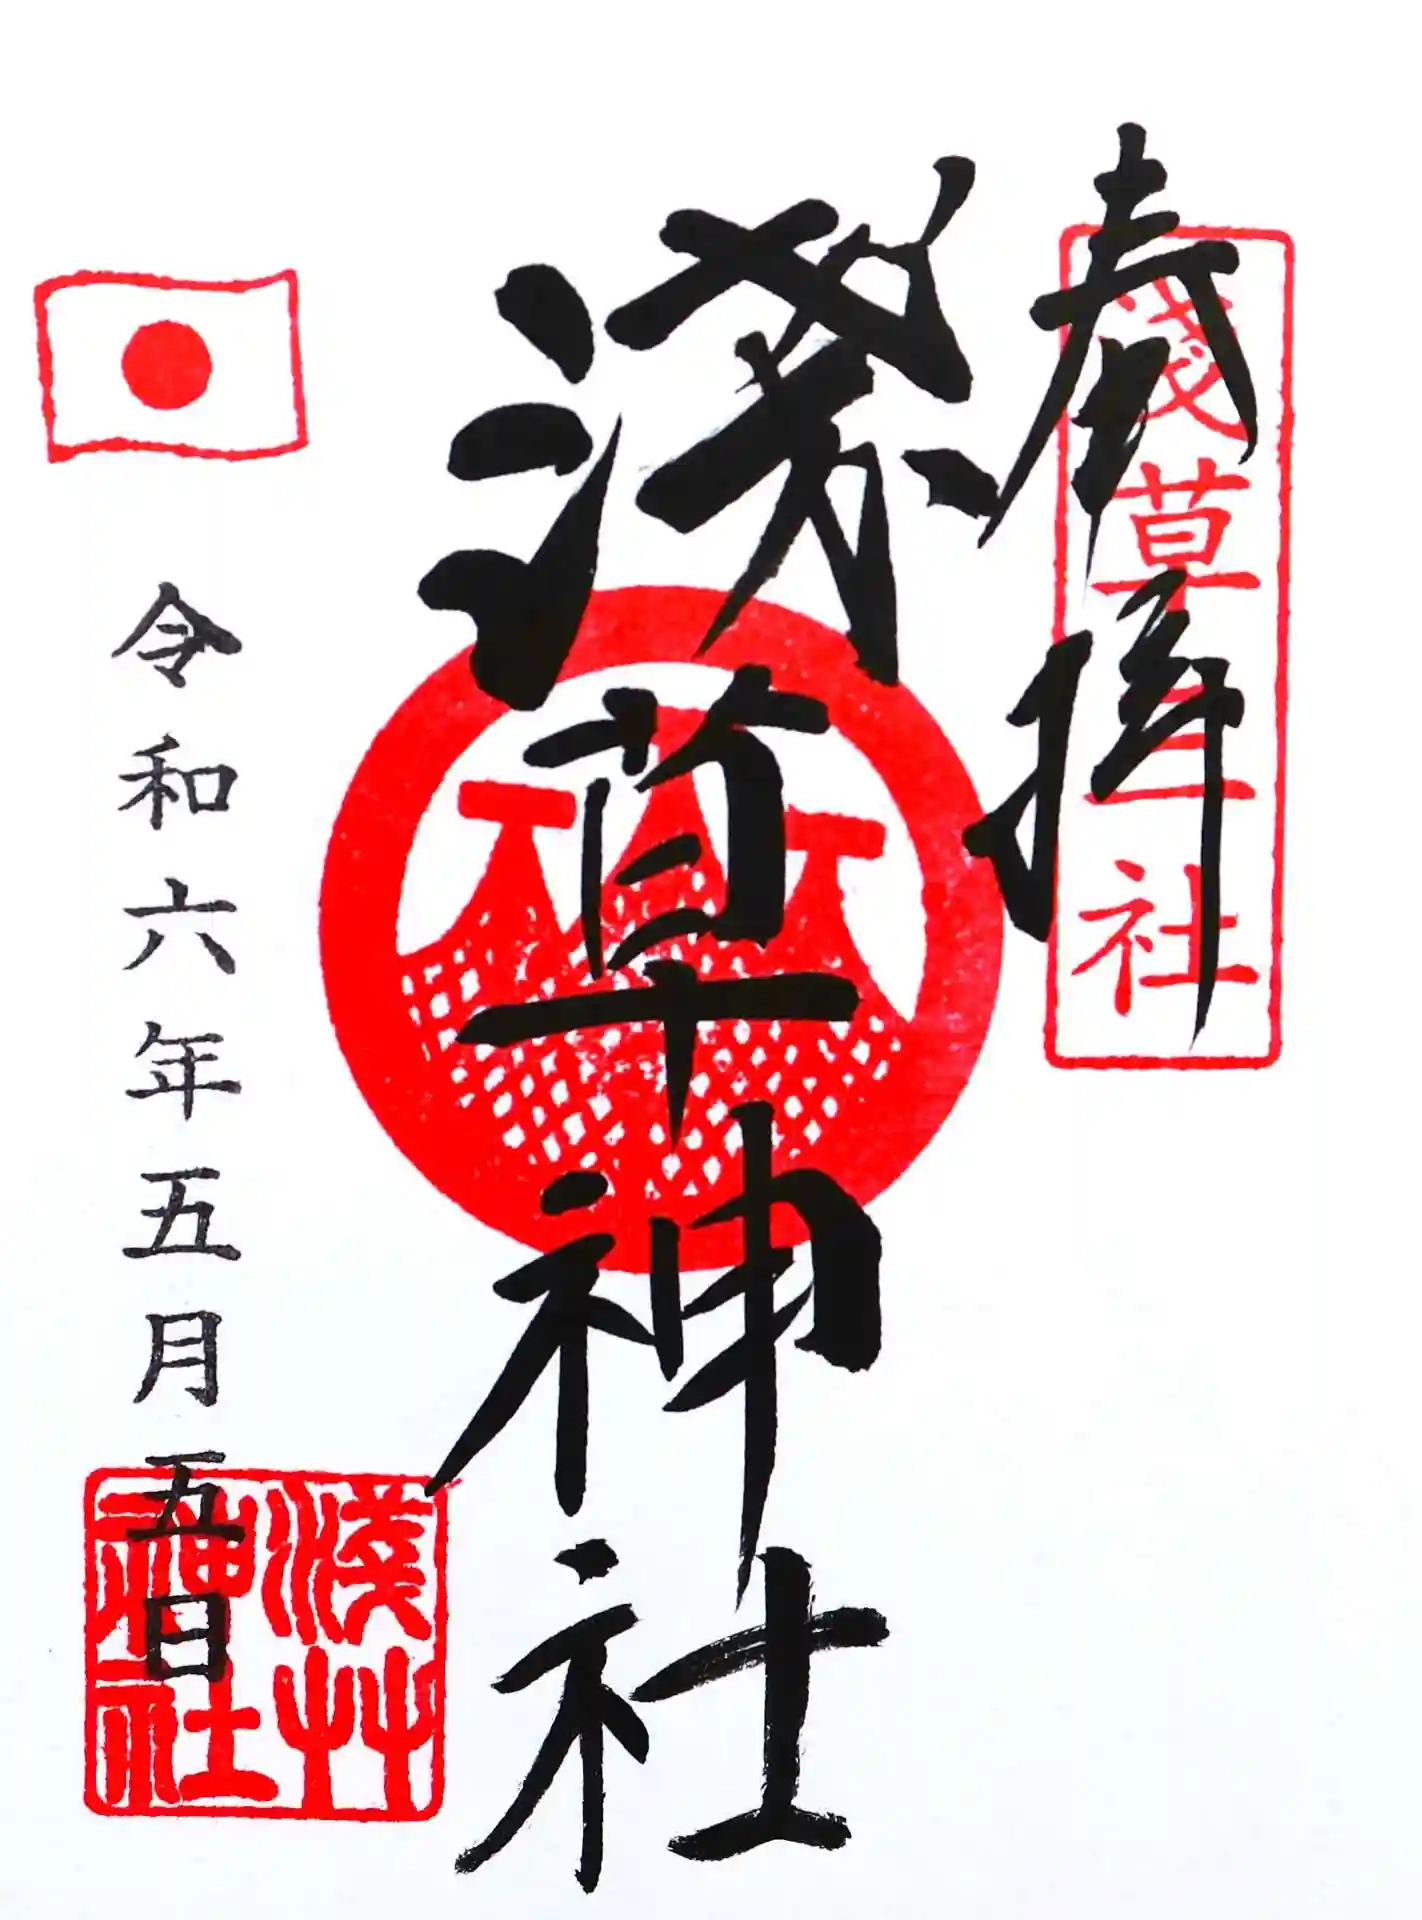 奉拝
淺草三社
淺草神社
令和六年五月五日
淺艸
神社